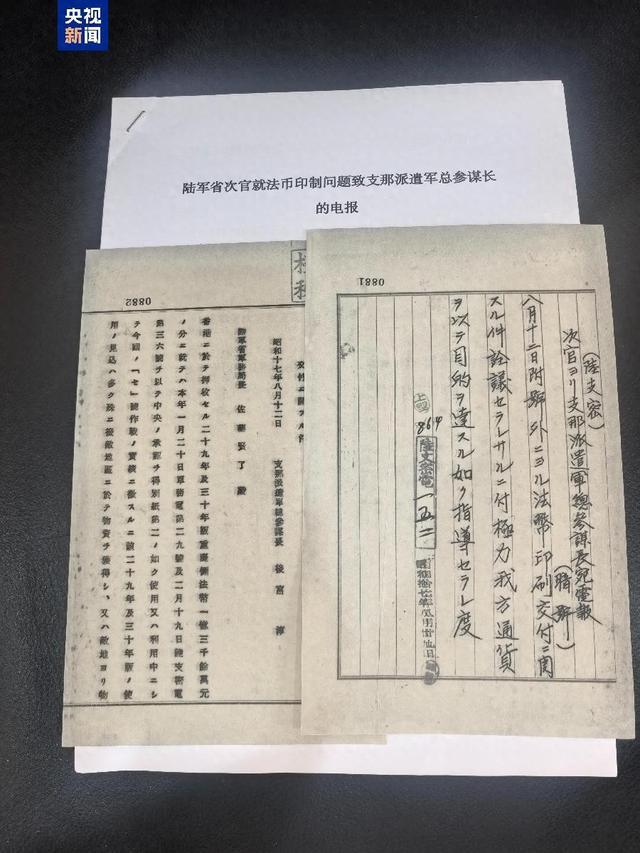 央视
新闻
陆军省次官就法币印制问题致支那派遣军总参谋长
的电报
0881
(陸支密)
次官ヨリ支那派遣軍總参謀長宛電報
(暗號)
八月十二日附號外ニヨル法幣印刷交付ニ関
スル件詮議セラレサルニ付極力我方通貨
ヲ以テ目的ヲ達スル如ク指導セラレ度
864
陸支密電
一五二
0882
交付ニ關スル件
昭和十七年八月十二日
支那派遣軍總參謀長 後宮 淳
陸軍省軍務局長 佐藤賢了殿
香港ニ於テ押收セル二十九年及三十年版重慶側法幣一億三千餘萬元
ノ分ニ就テハ本年一月二十日軍務電第二九號及二月十九日陸支密電
第三六號ヲ以テ中央ノ承認ヲ得別紙第二ノ如ク使用又ハ利用中ニシ
テ今囘ノ「セ」號作戰ノ實績ニ徵スルニ該二十九年及三十年版ノ使
用ノ見込ハ多ク殊ニ接敵地區ニ於テ物資ヲ獲得シ、又ハ敵地ヨリ物